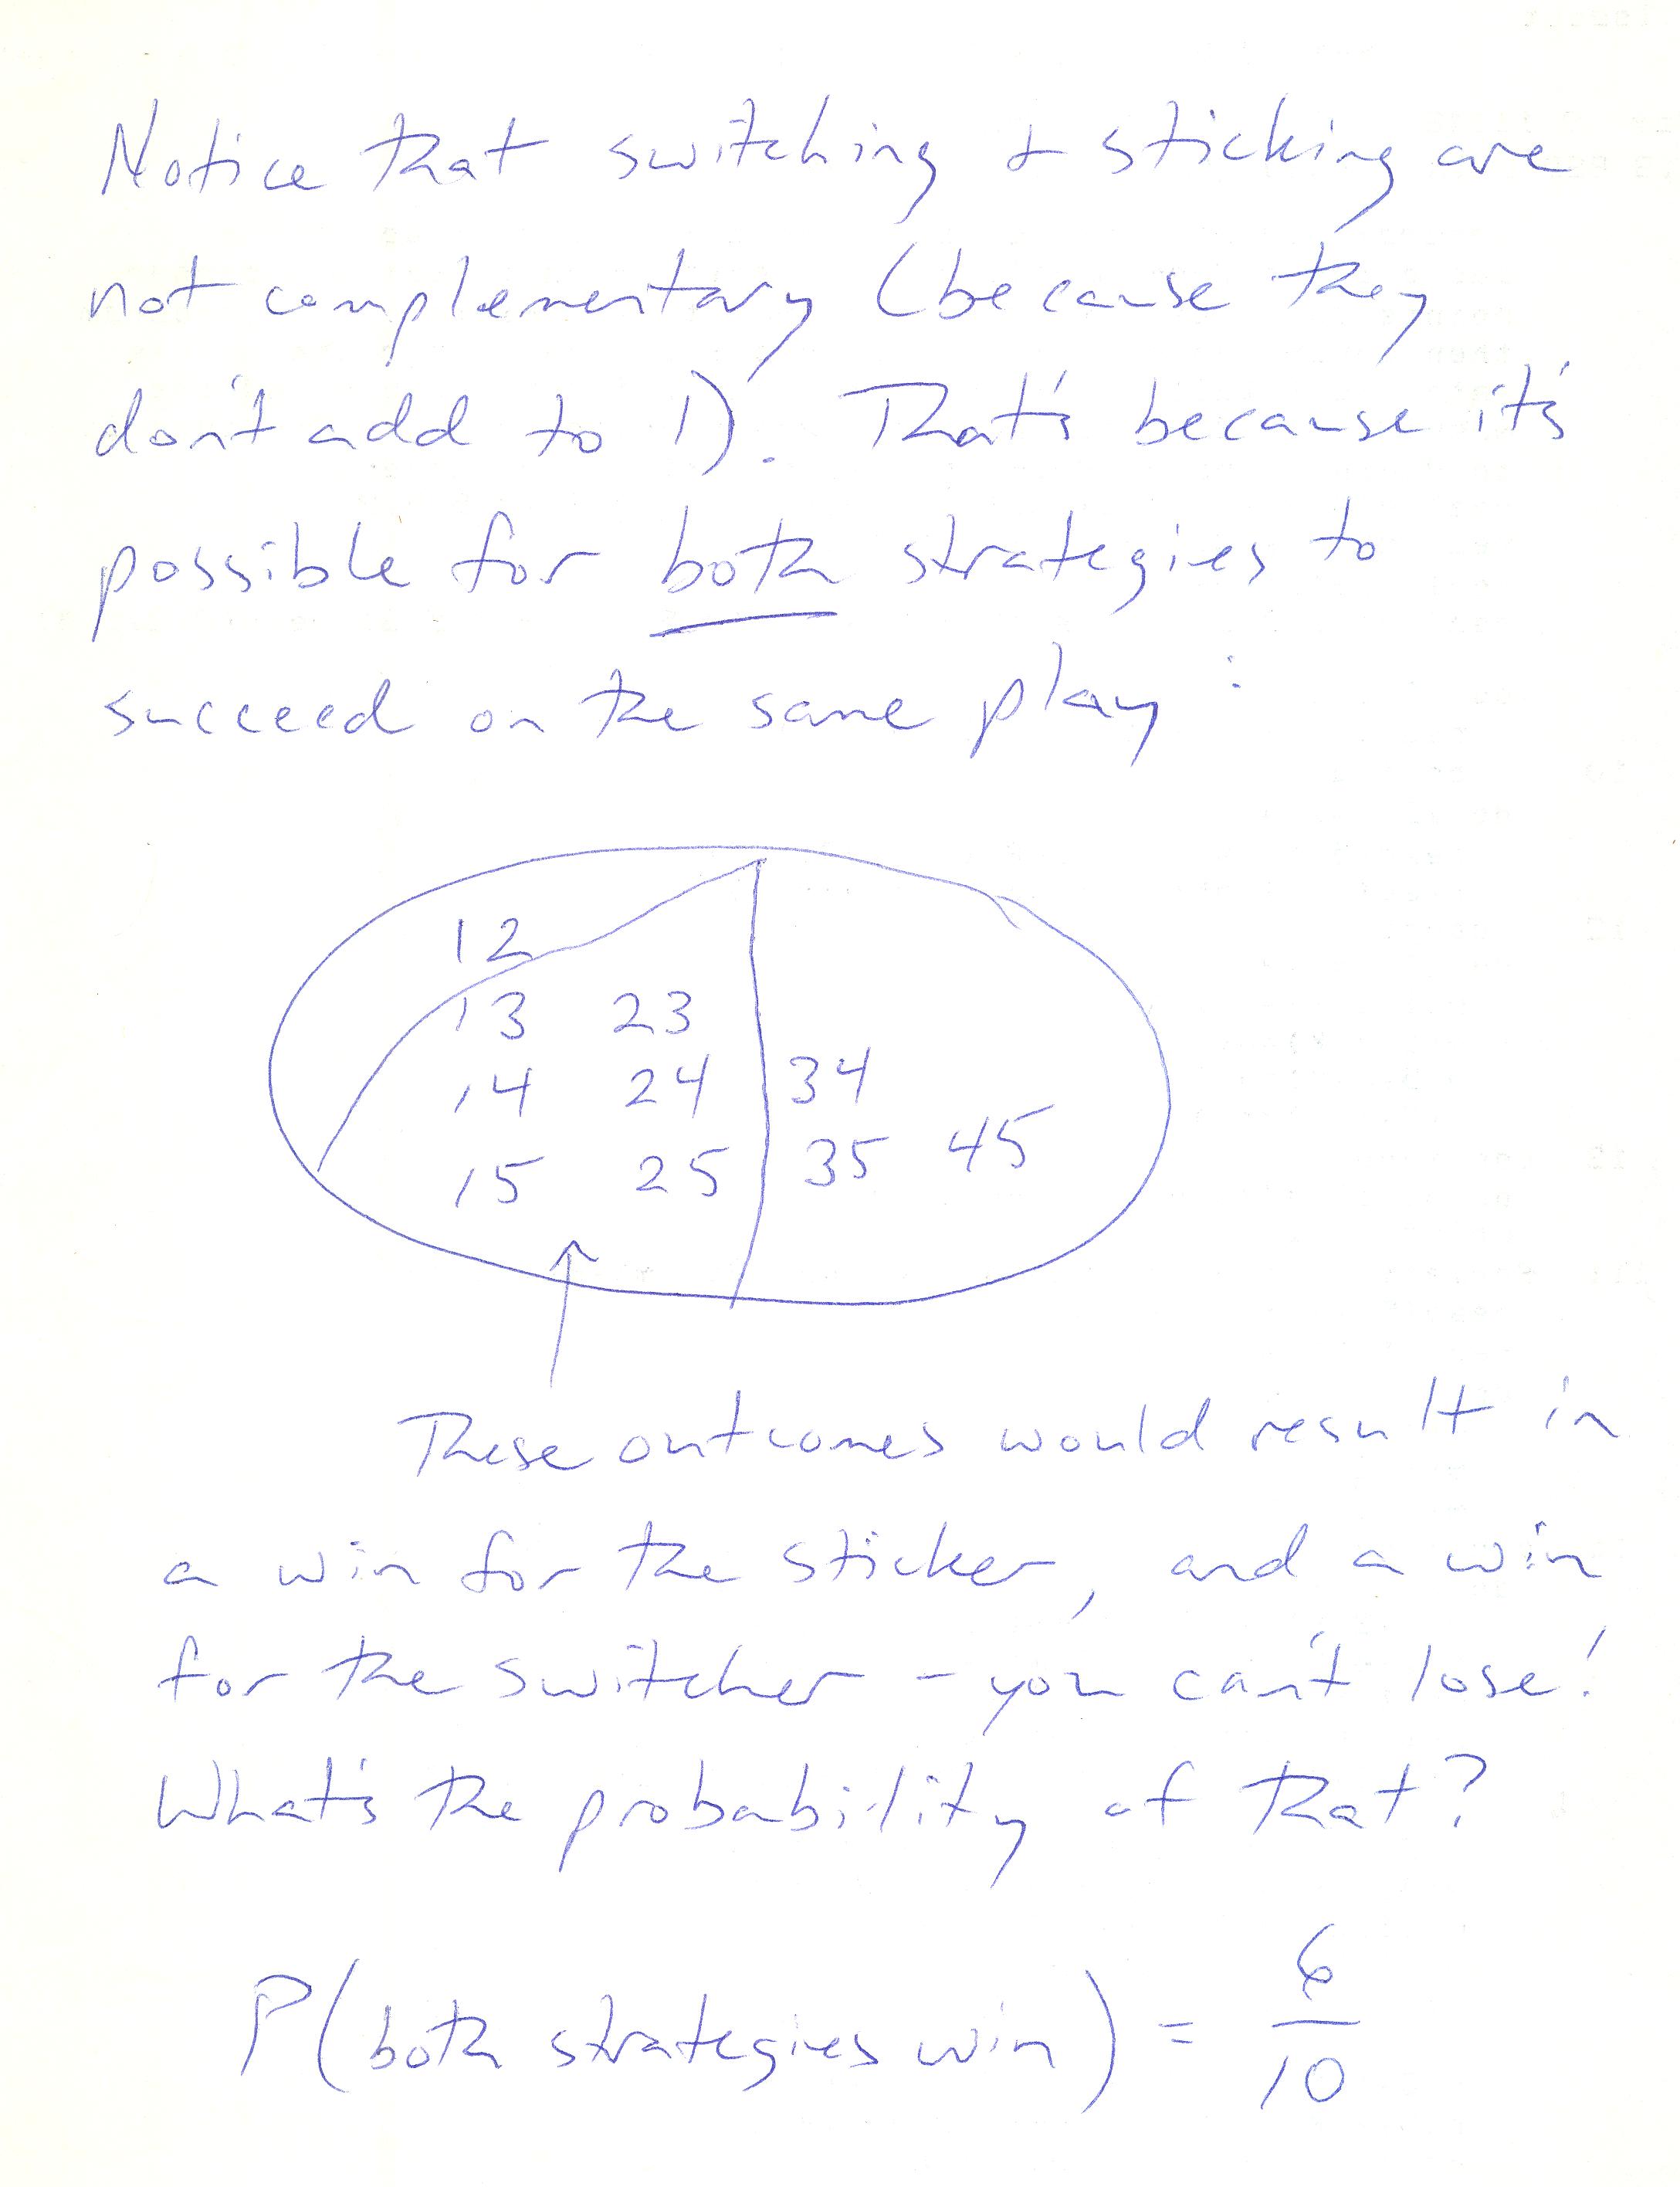 Notice that switching & sticking are
not complementary (because they
don't add to 1). That's because it's
possible for both strategies to
succeed on the same play:
12
13 23
14 24 34
15 25 35 45
These outcomes would result in
a win for the sticker, and a win
for the switcher - you can't lose!
What's the probability of that?
P(both strategies win) = 6/10